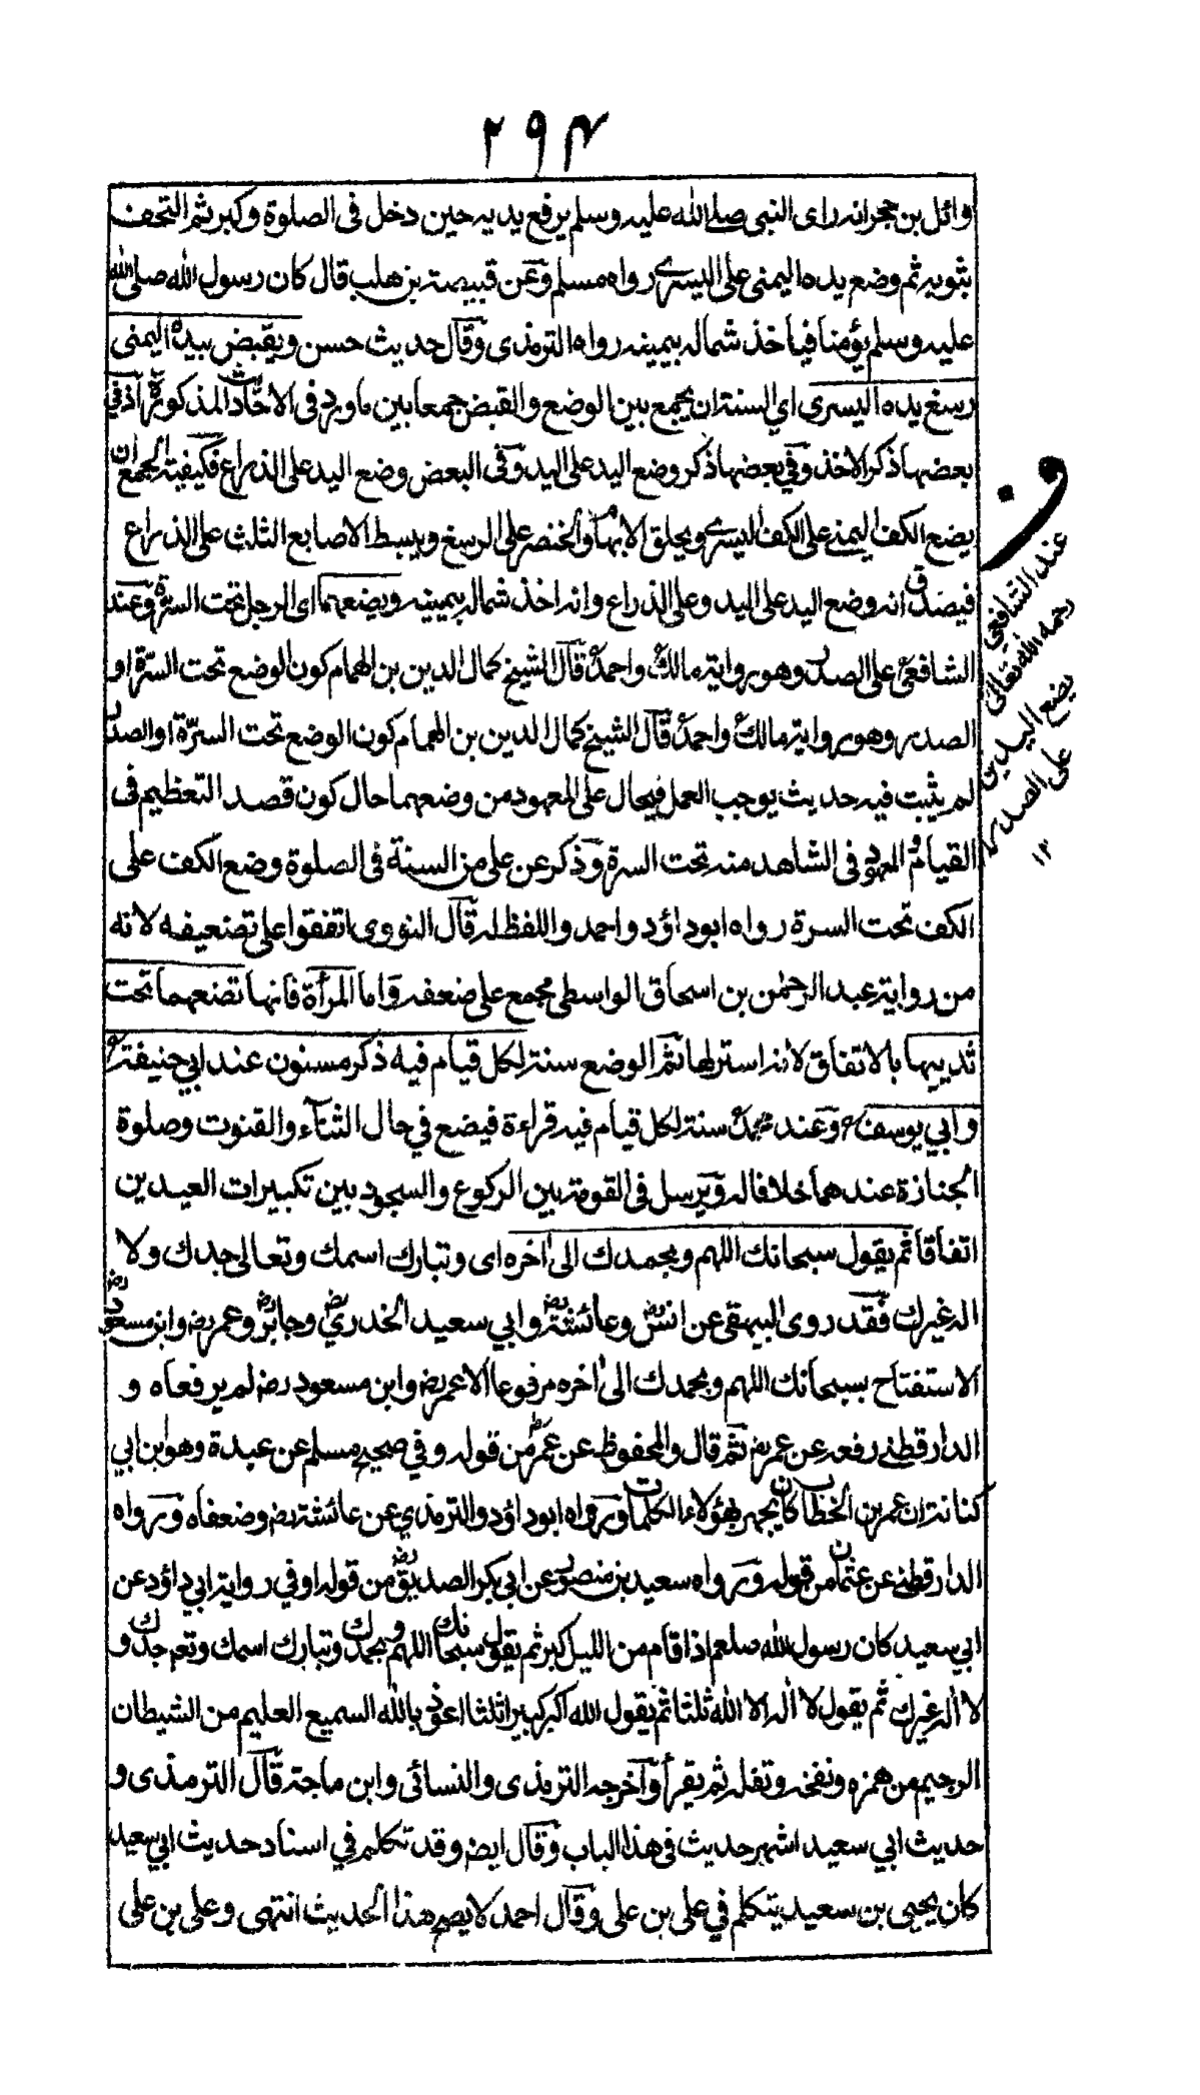 ٢٩٤
وائل بن حجر انه رای النبی صلے الله علیه وسلم یرفع یدیه حین دخل فی الصلوة وکبر ثم التحف
بثوبه ثم وضع یده الیمنی علی الیسری رواه مسلم وعن قبیصة بن هلب قال کان رسول الله صلی الله
علیه وسلم یؤمنا فیاخذ شماله بیمینه رواه الترمذی وقال حدیث حسن ویقبض بیده الیمنی
رسغ یده الیسری ای السنة ان یجمع بین الوضع والقبض جمعا بین ما ورد فی الاحادیث المذکورة اذ فی
بعضها ذکر الاخذ وفی بعضها ذکر وضع الید علی الید وفی البعض وضع الید علی الذراع فکیفیة الجمع ان
یضع الکف الیمنے علی الکف الیسری ویحلق الابهام والخنصر علی الرسغ ویبسط الاصابع الثلث علی الذراع
فیصدق انه وضع الید علی الید وعلی الذراع وانه اخذ شماله بیمینه ویضعهما ای الرجل تحت السرة وعند
الشافعیؒ علی الصدر وهو روایة مالکؒ واحمدؒ قال الشیخ کمال الدین بن الهمام کون الوضع تحت السرّة او
الصدر وهو روایة مالکؒ واحمدؒ قال الشیخ کمال الدین بن الهمام کون الوضع تحت السرّة او الصدر
لم یثبت فیه حدیث یوجب العمل فیحال علی المعهود من وضعهما حال کون قصد التعظیم فی
القیام والمعهود فی الشاهد منه تحت السرة وذکر عن علی من السنة فی الصلوة وضع الکف علی
الکف تحت السرة رواه ابو داؤد واحمد واللفظ له قال النووی اتفقوا علی تضعیفه لانه
من روایة عبد الرحمٰن بن اسحاق الواسطی مجمع علی ضعفه واما المرأة فانها تضعهما تحت
ثدییها بالاتفاق لانه استر لها ثم الوضع سنة لکل قیام فیه ذکر مسنون عند ابی حنیفةؒ
وابی یوسفؒ وعند محمدؒ سنة لکل قیام فیه قراءة فیضع فی حال الثناء والقنوت وصلوة
الجنازة عندهما خلافا له ویرسل فی القومة بین الرکوع والسجود بین تکبیرات العیدین
اتفاقا ثم یقول سبحانک اللهم وبحمدک الیٰ اخره ای وتبارک اسمک وتعالی جدک ولا
اله غیرک فقد روی البیهقی عن انسؓ وعائشةؓ وابی سعید الخدریؓ وجابرؓ وعمرؓ وابن مسعودؓ
الاستفتاح بسبحانک اللهم وبحمدک الیٰ اخره مرفوعا الا عمرؓ وابن مسعودؓ لم یرفعاه و
الدارقطنے رفعه عن عمرؓ ثم قال والمحفوظ عن عمرؓ من قوله وفی صحیح مسلم عن عبدة وهو ابن ابی
کنانة ان عمر بن الخطاب کان یجهر بهؤلاء الکلمات ورواه ابو داؤد والترمذی عن عائشةؓ وضعفاه ورواه
الدارقطنے عن عثمان من قوله ورواه سعید بن منصور عن ابی بکر الصدیقؓ من قوله وفی روایة ابی داؤد عن
ابی سعید کان رسول الله صلعم اذا قام من اللیل کبر ثم یقول سبحانک اللهم وبحمدک وتبارک اسمک وتعم جدک و
لا اله غیرک ثم یقول لا اله الا الله ثلثا ثم یقول الله اکبر کبیرا ثلثا اعوذ بالله السمیع العلیم من الشیطان
الرجیم من همزه ونفخه ونفثه ثم یقرأ واخرجه الترمذی والنسائی وابن ماجة قال الترمذی و
حدیث ابی سعید اشهر حدیث فی هذا الباب وقال ایضا وقد تکلم فی اسناد حدیث ابی سعید
کان یحیی بن سعید یتکلم فی علی بن علی وقال احمد لا یصح هذا الحدیث انتهی وعلی بن علی
ف
عند الشافعی
رحمه الله تعالی
یضع الیدین
علی الصدر
١٢